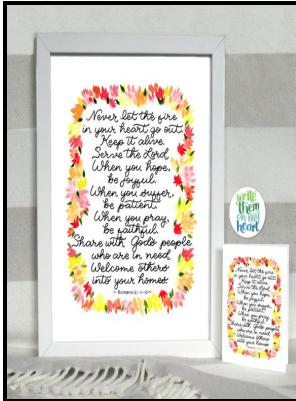 Never let the fire
in your heart go out.
Keep it alive.
Serve the Lord.
When you hope,
be joyful.
When you suffer,
be patient.
When you pray,
be faithful.
Share with God's people
who are in need.
Welcome others
into your homes.
write
them
on my
heart
Never let the fire
in your heart go out.
Keep it alive.
Serve the Lord.
When you hope,
be joyful.
When you suffer,
be patient.
When you pray,
be faithful.
Share with God's people
who are in need.
Welcome others
into your homes.